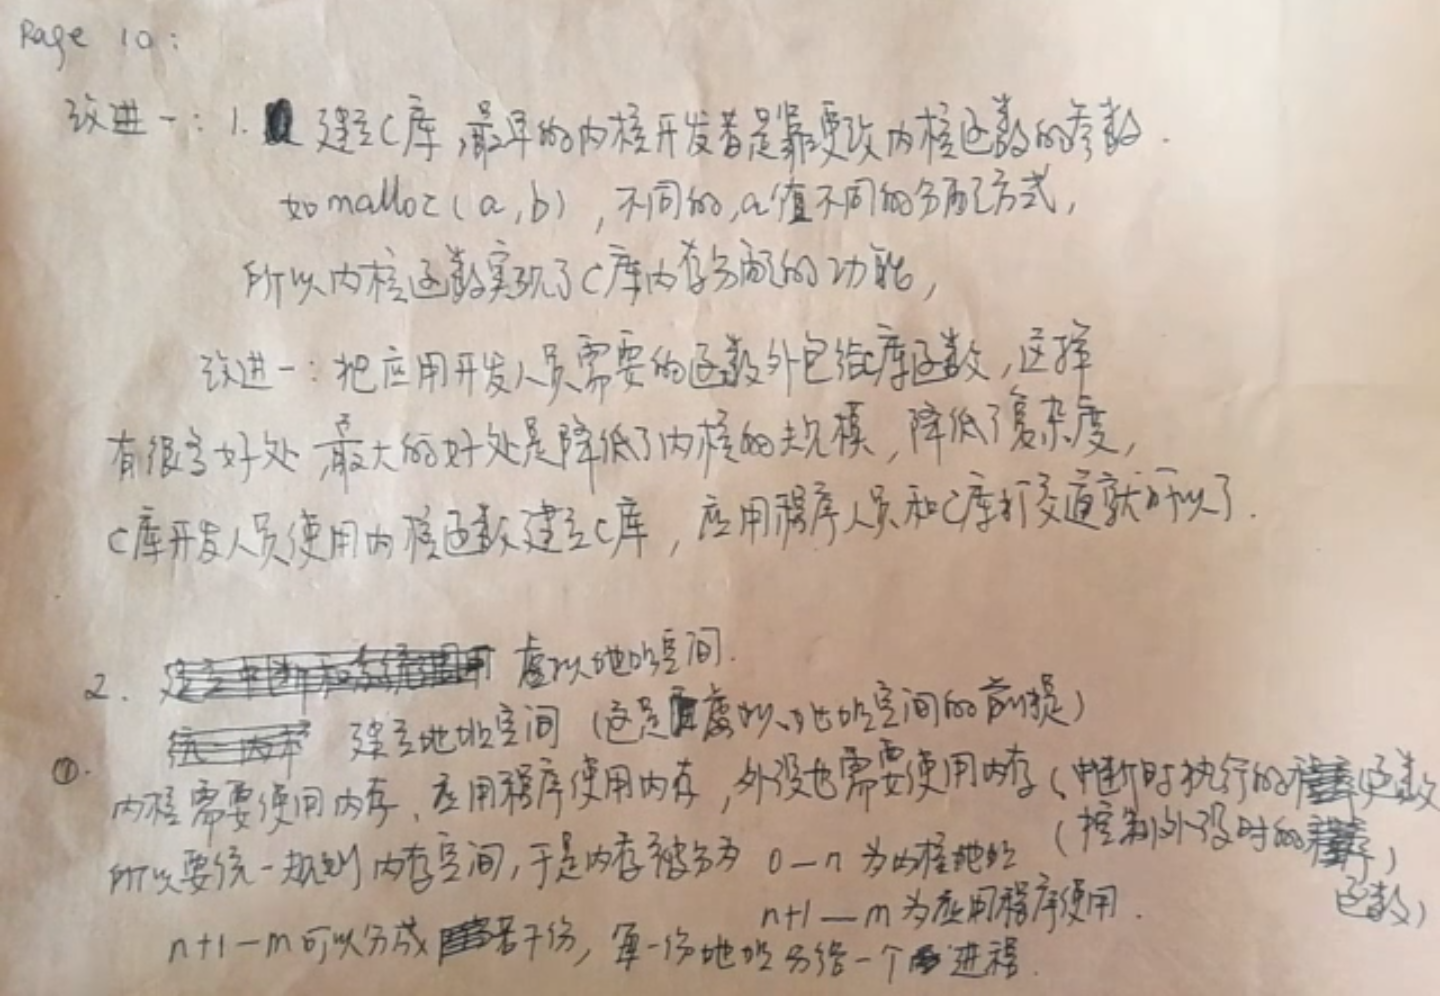 Page 10:
改进一: 1. 建立C库,最早的内核开发者是靠更改内核函数的参数.
如malloc(a,b),不同的,a值不同的分配方式,
所以内核函数实现了C库内存分配的功能,
改进一:把应用开发人员需要的函数外包给C库函数,这样
有很多好处,最大的好处是降低了内核的规模,降低了复杂度,
C库开发人员使用内核函数建立C库,应用程序人员和C库打交道就可以了.
2. 虚拟地址空间.
①. 建立地址空间(这是虚拟地址空间的前提)
内核需要使用内存、应用程序使用内存,外设也需要使用内存(中断时执行的函数
(控制外设时的函数)
所以要统一规划内存空间,于是内存被分为 0—n 为内核地址
n+1—m 为应用程序使用.
n+1—m可以分成若干份,每一份地址分给一个进程.